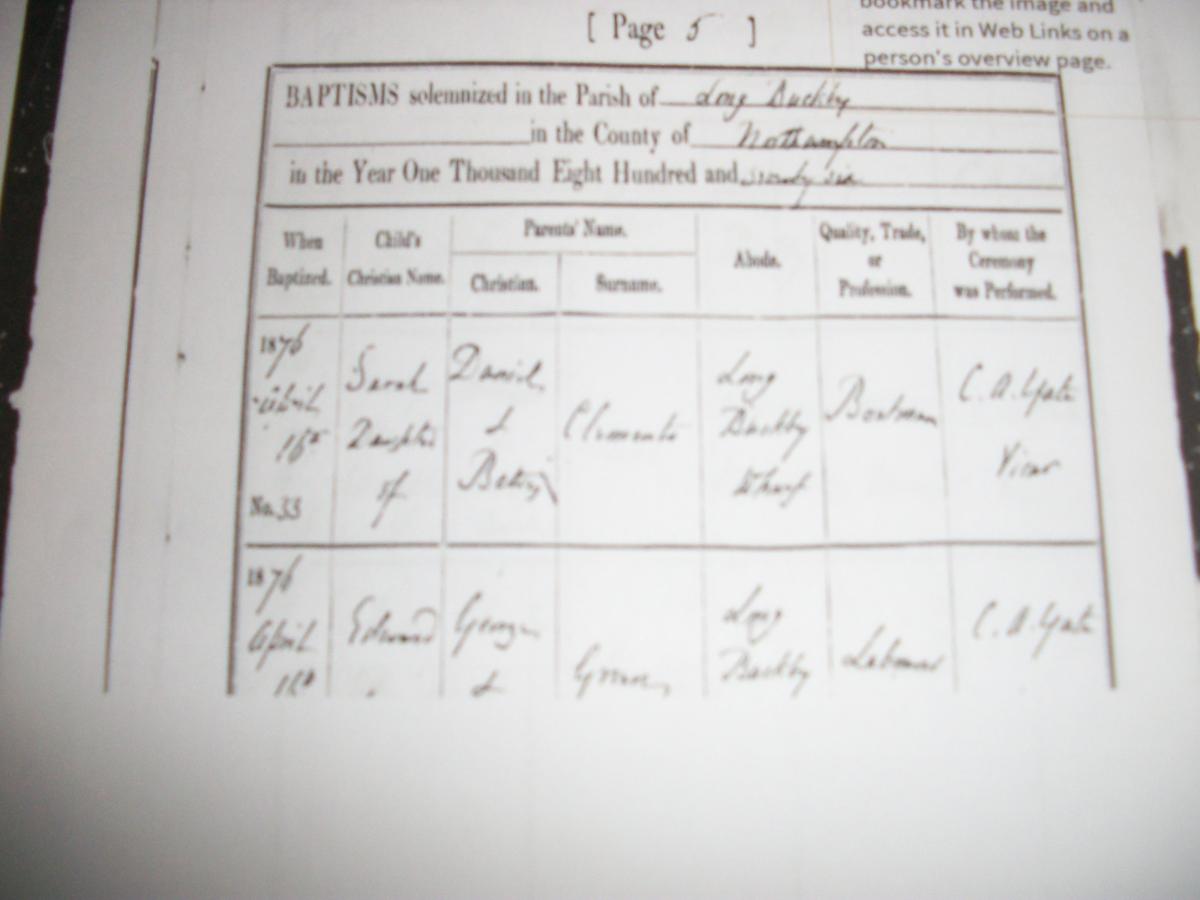 bookmark the image and
access it in Web Links on a
person's overview page.
[ Page 5 ]
BAPTISMS solemnized in the Parish of Long Buckby
in the County of Northampton
in the Year One Thousand Eight Hundred and seventy six
When Baptized.
Child's Christian Name.
Parents' Name.
Christian.
Surname.
Abode.
Quality, Trade, or Profession.
By whom the Ceremony was Performed.
1876
April
16th
No. 33
Sarah
Daughter
of
Daniel
&
Betsy
Clements
Long
Buckby
Wharf
Boatman
C. A. Yate
Vicar
1876
April
16th
Edward
George
&
Green
Long
Buckby
Labourer
C. A. Yate